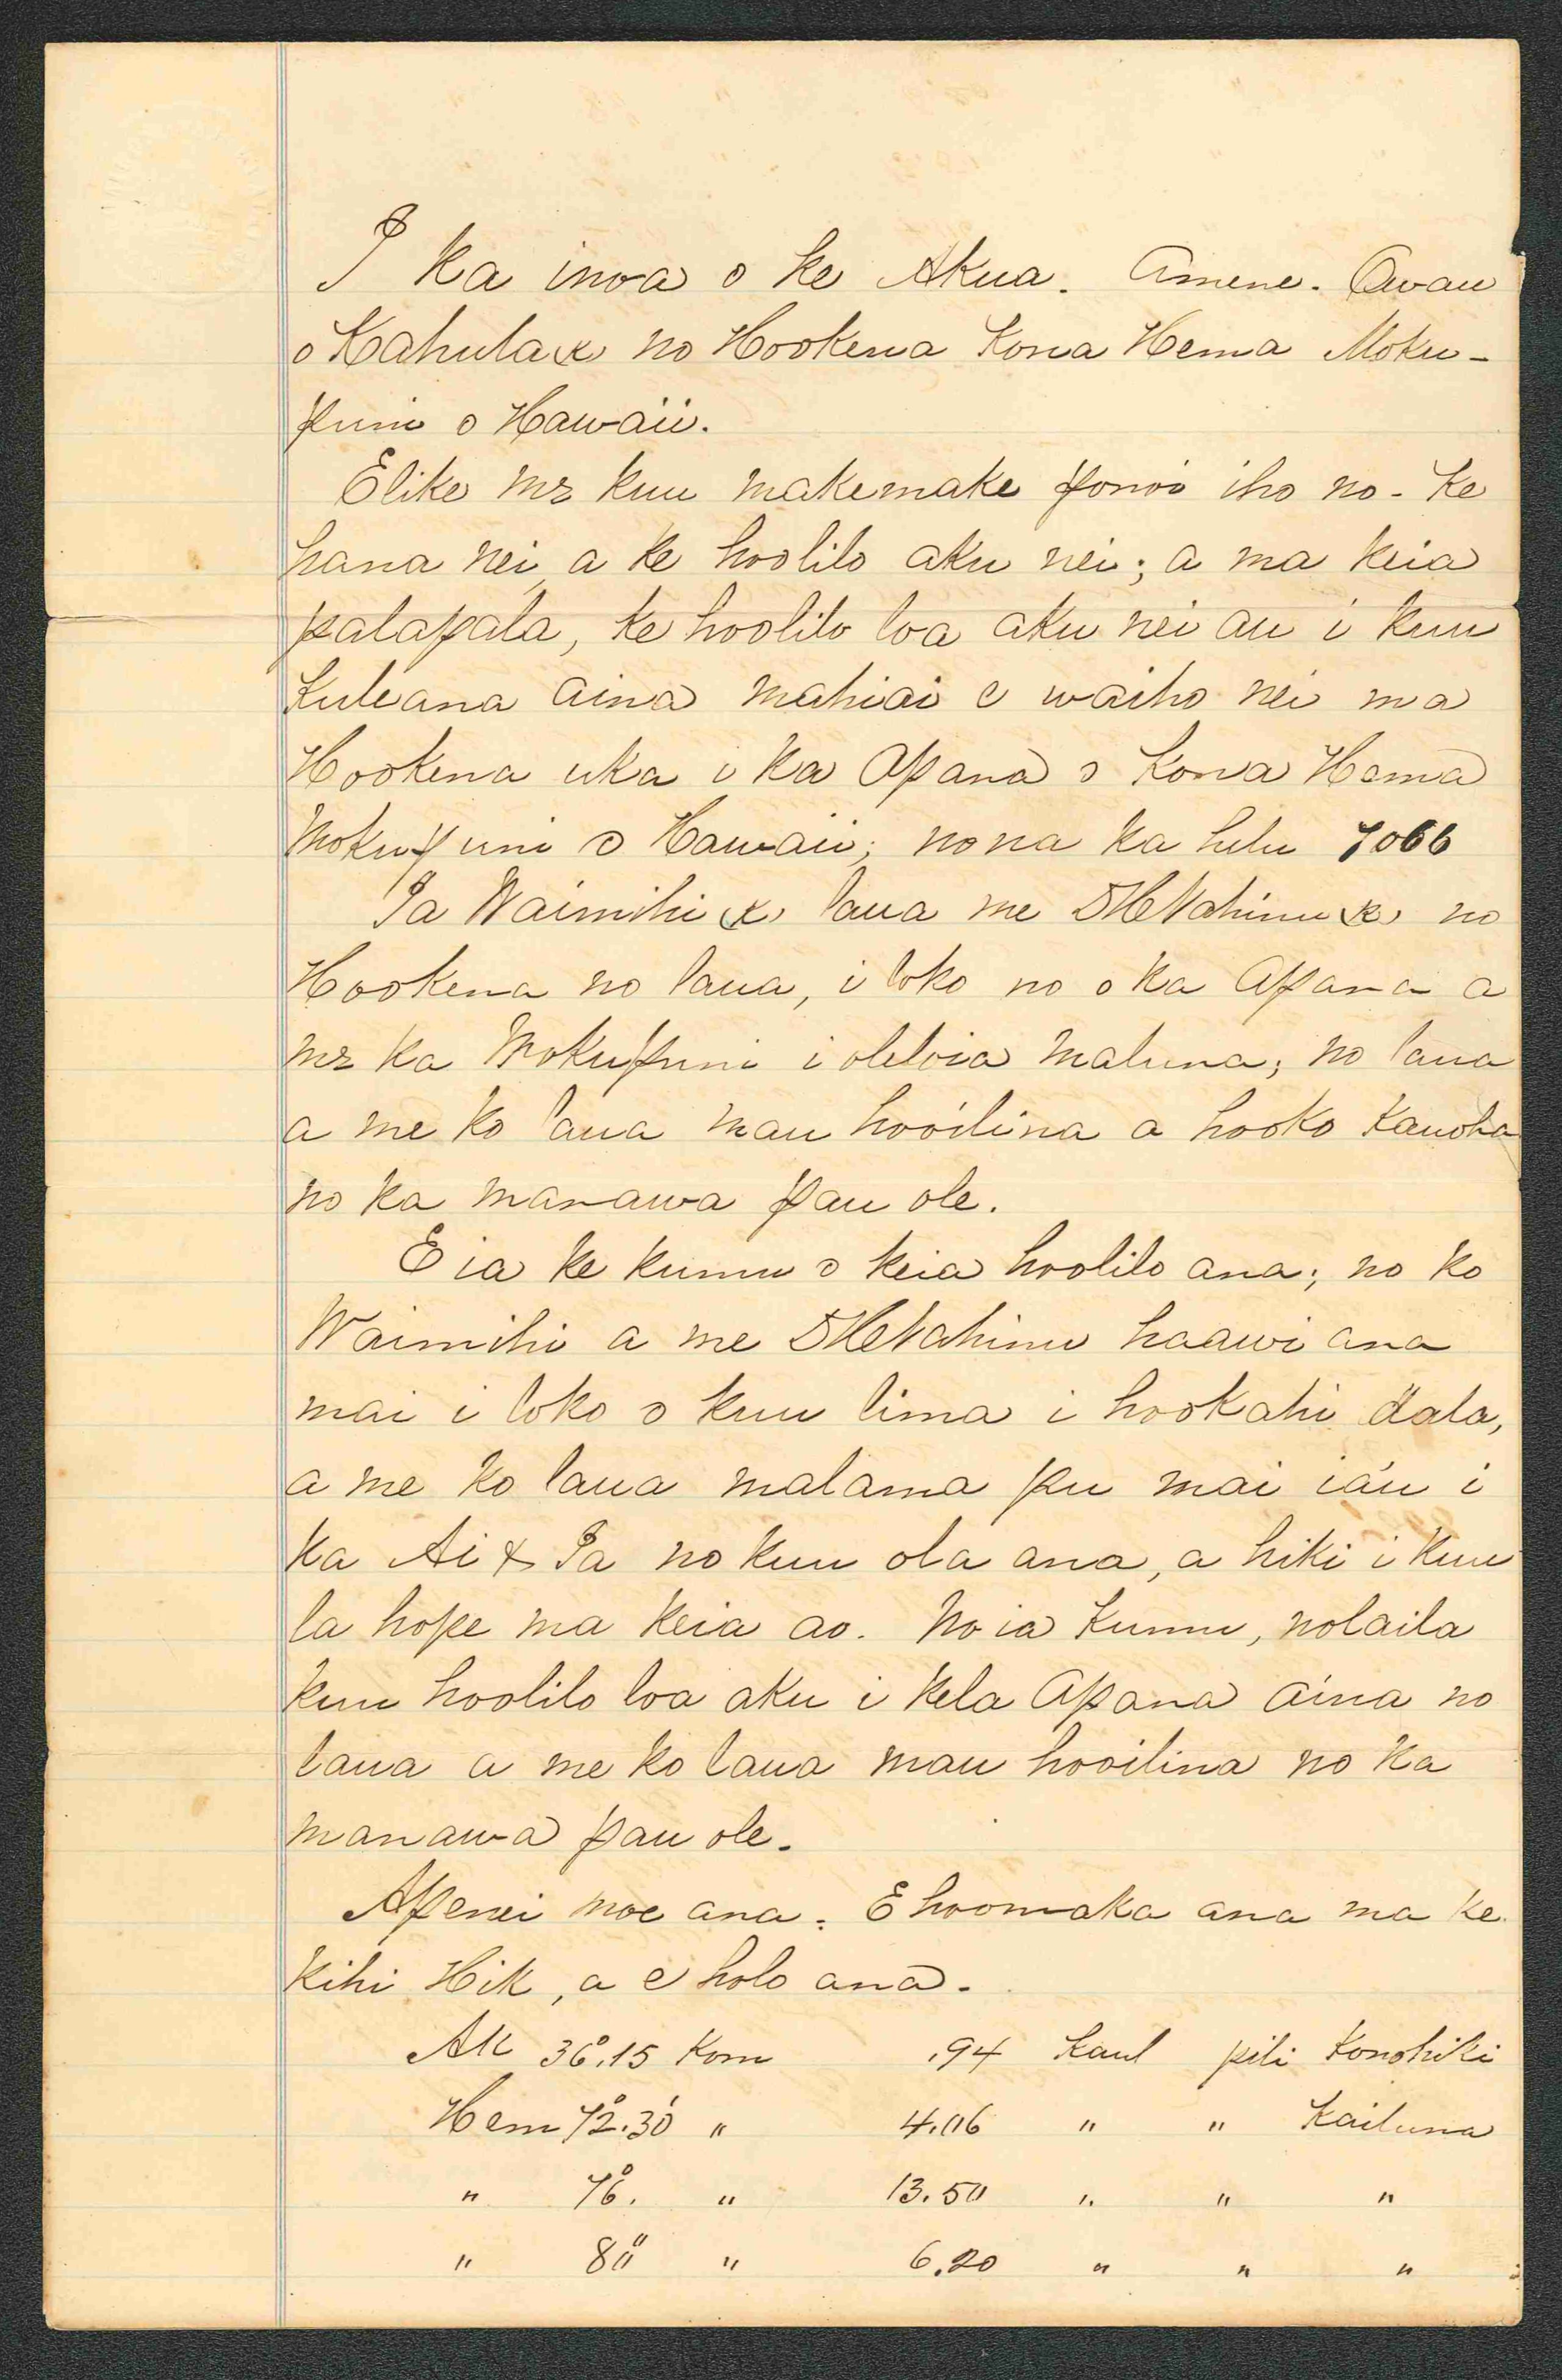 I ka inoa o ke Akua. Amene. Owau
o Kahula (k) no Hookena Kona Hema Moku-
puni o Hawaii.
Elike me kuu makemake ponoi iho no - ke
hana nei, a ke hoolilo aku nei; a ma keia
palapala, ke hoolilo loa aku nei au i kuu
Kuleana aina mahiai e waiho nei ma
Hookena uka i ka Apana o Kona Hema
Mokupuni o Hawaii; nona ka helu 7066
Ia Waimihi (k) laua me SHWahinu (k) no
Hookena no laua, i loko no o ka Apana a
me ka Mokupuni i oleloia maluna; no laua
a me ko laua mau hooilina a hooko Kauoha
no ka manawa pau ole.
Eia ke kumu o keia hoolilo ana; no ko
Waimihi a me SHWahinu haawi ana
mai i loko o kuu lima i hookahi dala,
a me ko laua malama pu mai ia'u i
ka Ai & Ia no kuu ola ana, a hiki i kuu
la hope ma keia ao. No ia kumu, nolaila
kuu hoolilo loa aku i kela Apana aina no
laua a me ko laua mau hooilina no ka
manawa pau ole.
Apenei moe ana. E hoomaka ana ma ke
kihi Hik, a e holo ana.
Ak 36°.15 Kom .94 Kaul pili Konohiki
Hem 72°.30' " 4.06 " " Kailuna
" 76°. " 13.50 " " "
" 80° " 6.20 " " "